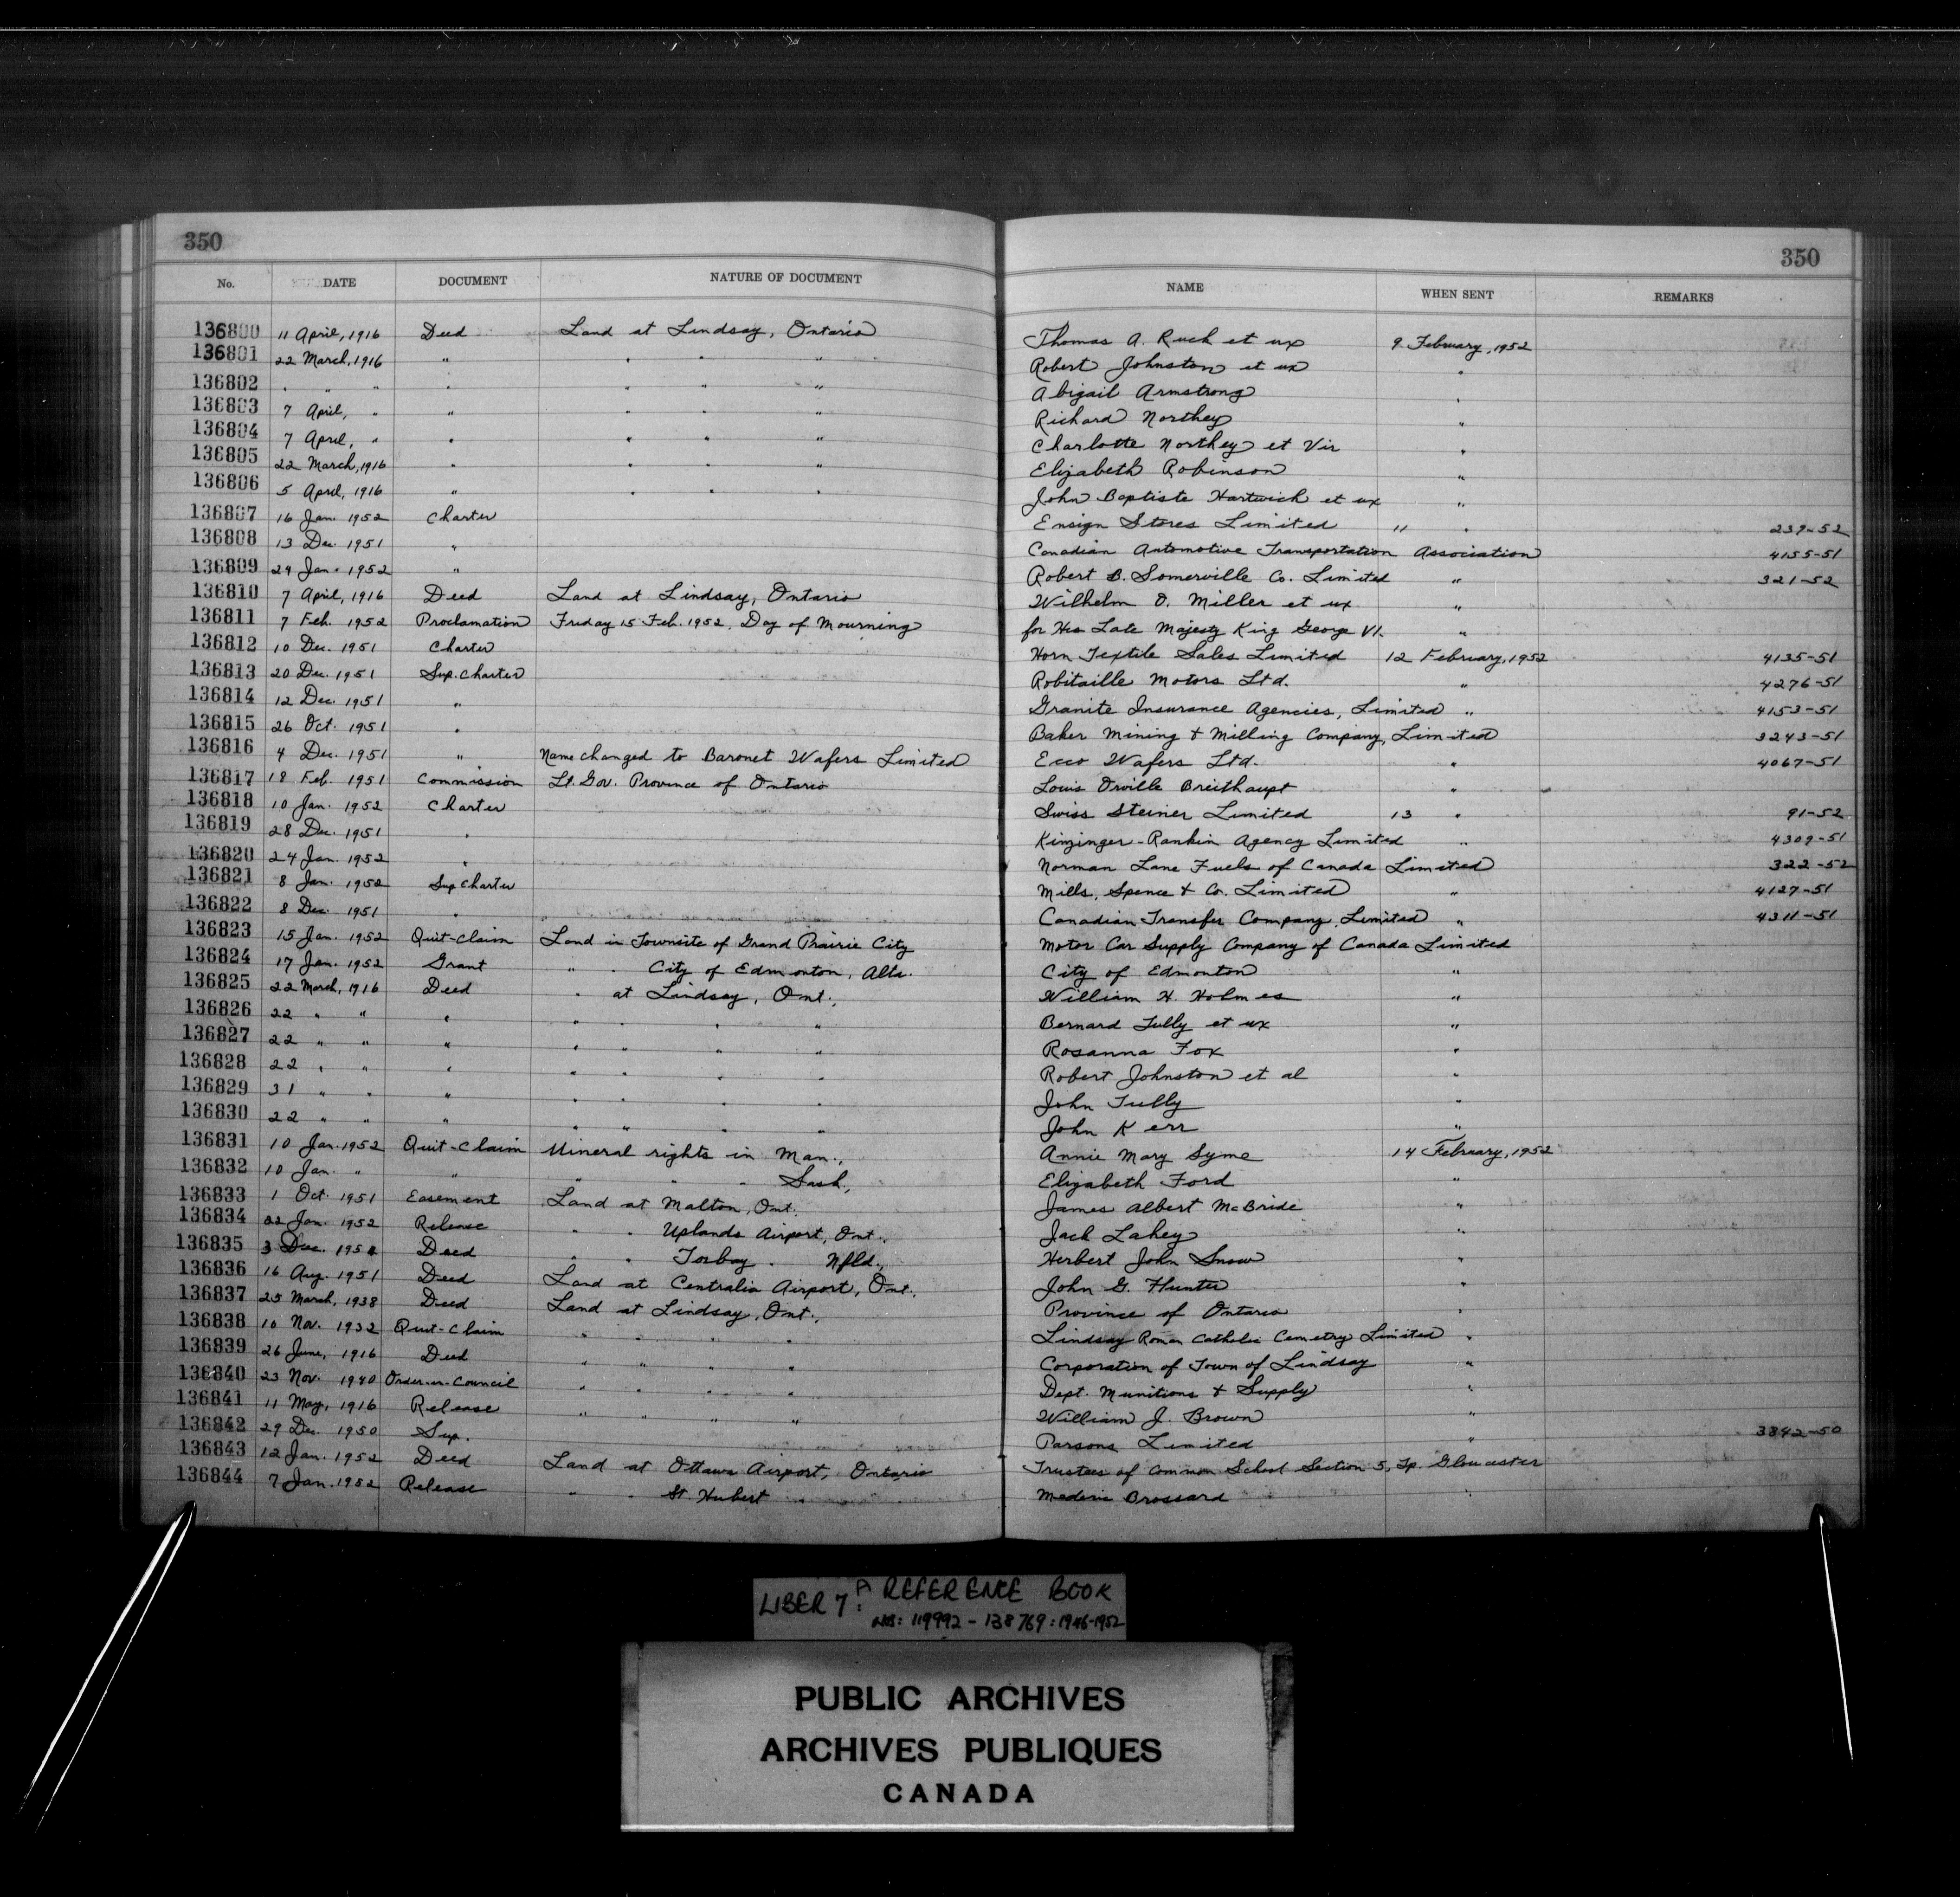 350
350
No. DATE DOCUMENT NATURE OF DOCUMENT NAME WHEN SENT REMARKS
136800 11 April, 1916 Deed Land at Lindsay, Ontario Thomas A. Ruch et ux 9 February, 1952
136801 22 March, 1916 " " " " Robert Johnston et ux "
136802 " " " " " " " Abigail Armstrong "
136803 7 April, " " " " " Richard Northey "
136804 7 April, " " " " " Charlotte Northey et Vir "
136805 22 March, 1916 " " " " Elizabeth Robinson "
136806 5 April, 1916 " " " " John Baptiste Hartwich et ux "
136807 16 Jan. 1952 Charter Ensign Stores Limited " " 239-52
136808 13 Dec. 1951 " Canadian Automotive Transportation Association 4155-51
136809 24 Jan. 1952 " Robert B. Somerville Co. Limited " 321-52
136810 7 April, 1916 Deed Land at Lindsay, Ontario Wilhelm O. Miller et ux "
136811 7 Feb. 1952 Proclamation Friday 15 Feb. 1952, Day of Mourning for His Late Majesty King George VI. "
136812 10 Dec. 1951 Charter Horn Textile Sales Limited 12 February, 1952 4135-51
136813 20 Dec. 1951 Sup. Charter Robitaille Motors Ltd. " 4276-51
136814 12 Dec. 1951 " Granite Insurance Agencies, Limited " 4153-51
136815 26 Oct. 1951 " Baker Mining & Milling Company, Limited 3243-51
136816 4 Dec. 1951 " Name changed to Baronet Wafers Limited Ecco Wafers Ltd. " 4067-51
136817 18 Feb. 1951 Commission Lt. Gov. Province of Ontario Louis Orville Breithaupt "
136818 10 Jan. 1952 Charter Swiss Steiner Limited 13 " 91-52
136819 28 Dec. 1951 " Kinzinger-Rankin Agency Limited " 4309-51
136820 24 Jan. 1952 " Norman Lane Fuels of Canada Limited 322-52
136821 8 Jan. 1952 Sup Charter Mills, Spence & Co. Limited " 4127-51
136822 8 Dec. 1951 " Canadian Transfer Company, Limited " 4311-51
136823 15 Jan. 1952 Quit-Claim Land in Townsite of Grand Prairie City Motor Car Supply Company of Canada Limited
136824 17 Jan. 1952 Grant " " City of Edmonton, Alta. City of Edmonton "
136825 22 March, 1916 Deed " at Lindsay, Ont., William H. Holmes "
136826 22 " " " " " " " Bernard Tully et ux "
136827 22 " " " " " " " Rosanna Fox "
136828 22 " " " " " " " Robert Johnston et al "
136829 31 " " " " " " " John Tully "
136830 22 " " " " " " " John Kerr "
136831 10 Jan. 1952 Quit-Claim Mineral rights in Man., Annie Mary Syme 14 February, 1952
136832 10 Jan. " " " " " Sask., Elizabeth Ford "
136833 1 Oct. 1951 Easement Land at Malton, Ont. James Albert McBride "
136834 22 Jan. 1952 Release " " Uplands Airport, Ont., Jack Lahey "
136835 3 Dec. 195 Deed " " Torbay " Nfld., Herbert John Snow "
136836 16 Aug. 1951 Deed Land at Centralia Airport, Ont., John G. Hunter "
136837 25 March, 1938 Deed Land at Lindsay, Ont., Province of Ontario "
136838 10 Nov. 1932 Quit-Claim " " " " Lindsay Roman Catholic Cemetery Limited "
136839 26 June, 1916 Deed " " " " Corporation of Town of Lindsay "
136840 23 Nov. 1940 Order-in-Council " " " " Dept. Munitions & Supply "
136841 11 May, 1916 Release " " " " William J. Brown "
136842 29 Dec. 1950 Sup. Parsons Limited " 3842-50
136843 12 Jan. 1952 Deed Land at Ottawa Airport, Ontario Trustees of Common School Section 5, Tp. Gloucester
136844 7 Jan. 1952 Release " " St. Hubert " Mederic Brossard "
LIBER 7A: REFERENCE BOOK
NOS: 119992 - 138769: 1946-1952
PUBLIC ARCHIVES
ARCHIVES PUBLIQUES
CANADA